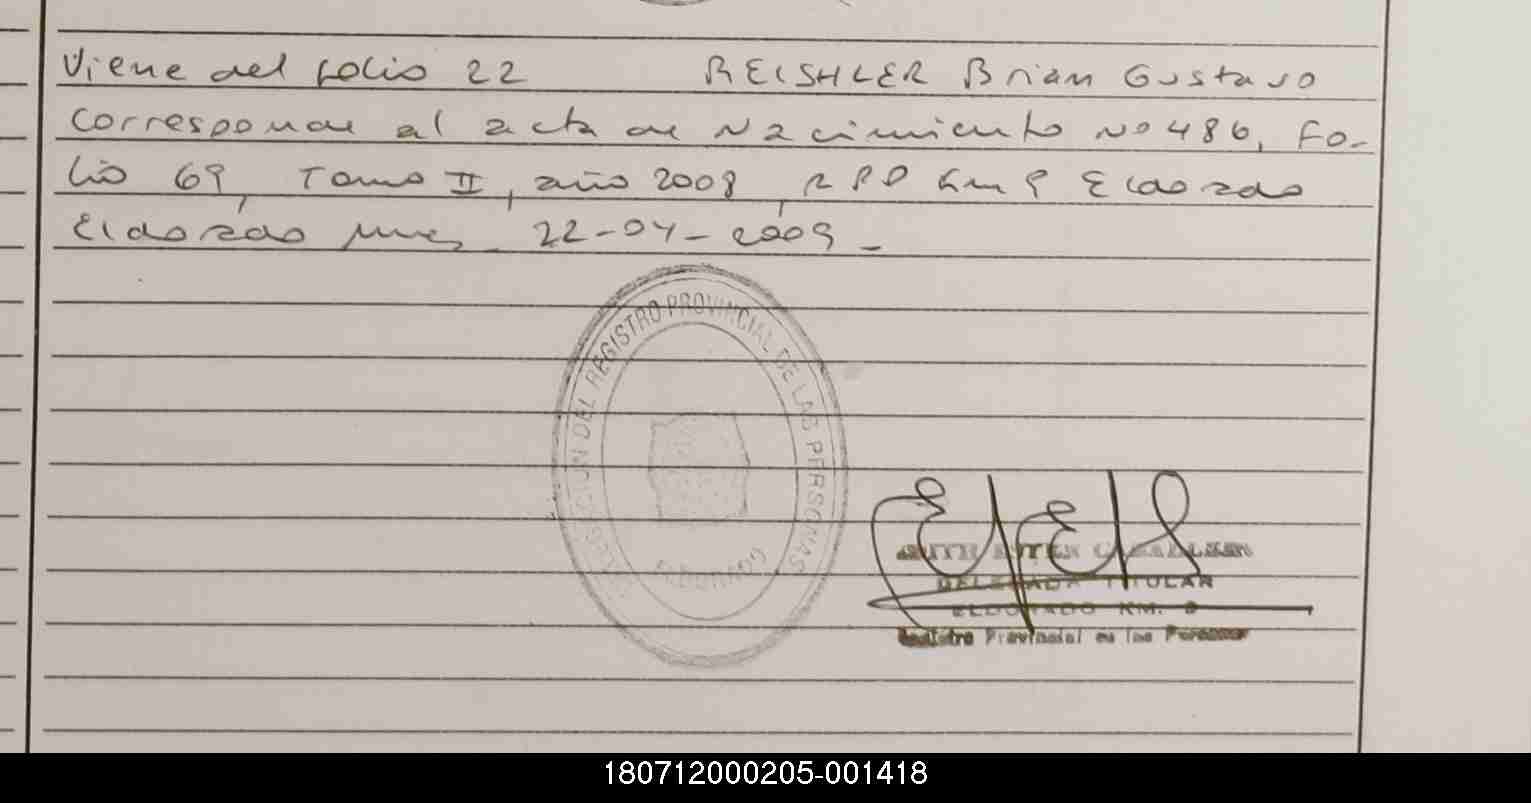 Viene del folio 22 REISHLER Brian Gustavo
Corresponde al acta de Nacimiento Nº 486, Fo-
lio 69, Tomo II, año 2008, RPP Km 9 Eldorado
Eldorado Mnes 22-04-2009-
DELEGACION DEL REGISTRO PROVINCIAL DE LAS PERSONAS
ELDORADO
DELEGADA TITULAR
ELDORADO KM. 9
Registro Provincial de las Personas
180712000205-001418